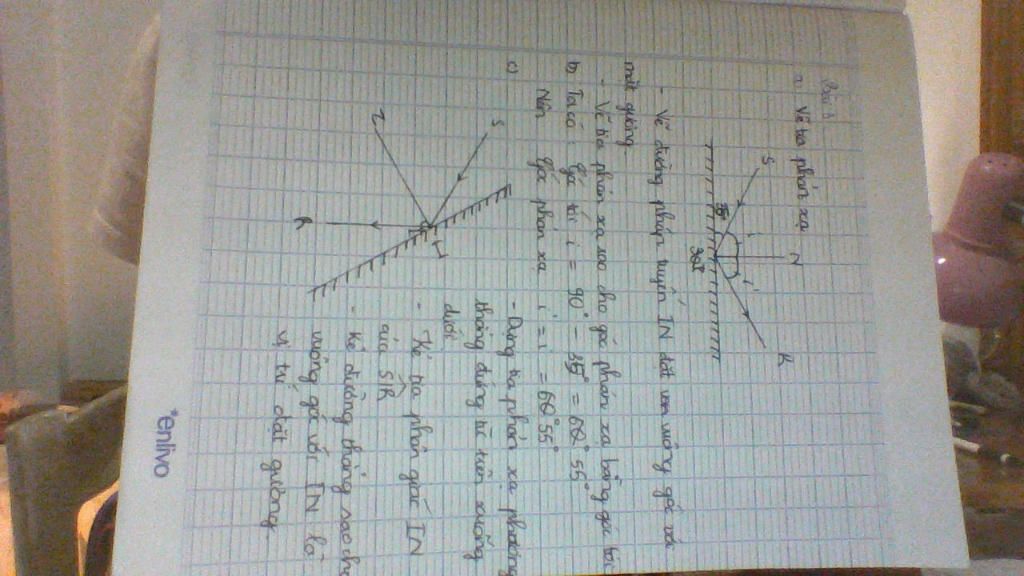 Bài 1
a. Vẽ tia phản xạ
S
N
R
i
i'
35°
- Vẽ đường pháp tuyến IN đặt vuông góc với
mặt gương.
- Vẽ tia phản xạ sao cho góc phản xạ bằng góc tới
b) Ta có: góc tới i = 90° - 35° = 55°
Nên góc phản xạ i' = i = 55°
c)
S
N
I
R
- Dựng tia phản xạ phương
thẳng đứng từ trên xuống
dưới
- Kẻ tia phân giác IN
của SIR
- Kẻ đường thẳng sao cho
vuông góc với IN là
vị trí đặt gương.
enlivo